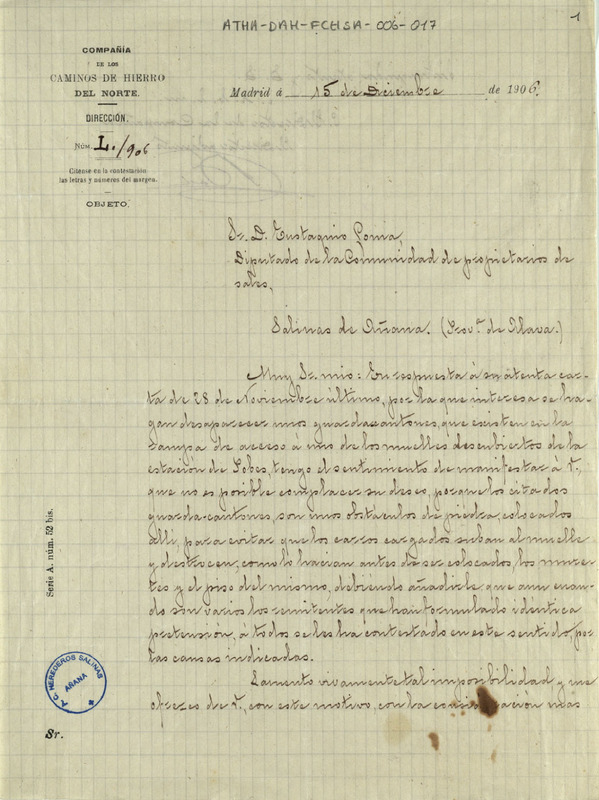 ATHA-DAH-FCHSA-006-017
1
COMPAÑÍA
DE LOS
CAMINOS DE HIERRO
DEL NORTE.
DIRECCIÓN.
NÚM. L./906
Cítense en la contestación
las letras y números del margen.
OBJETO.
Madrid á 15 de Diciembre de 1906.
Sr. D. Eustaquio Poma,
Diputado de la Comunidad de propietarios de
sales,
Salinas de Añana. (Provª. de Alava.)
Muy Sr. mio: En respuesta á su atenta car-
ta de 28 de Noviembre último, por la que interesa se ha-
gan desaparecer unos guardacantones, que existen en la
rampa de acceso á uno de los muelles descubiertos de la
estación de Pobes, tengo el sentimiento de manifestar á V.,
que no es posible complacer su deseo, porque los citados
guarda-cantones, son unos obstáculos de piedra, colocados
allí, para evitar que los carros cargados suban al muelle
y destrocen, como lo hacian antes de ser colocados, los
y el piso del mismo, debiendo añadirle, que aun cuan-
do son varios los remitentes que han formulado idéntica
pretensión, á todos se les ha contestado en este sentido, por
las causas indicadas.
Lamento vivamente tal imposibilidad y me
ofrezco de V., con este motivo, con la consideración más
Serie A. núm. 52 bis.
HEREDEROS SALINAS
AÑANA
Sr.